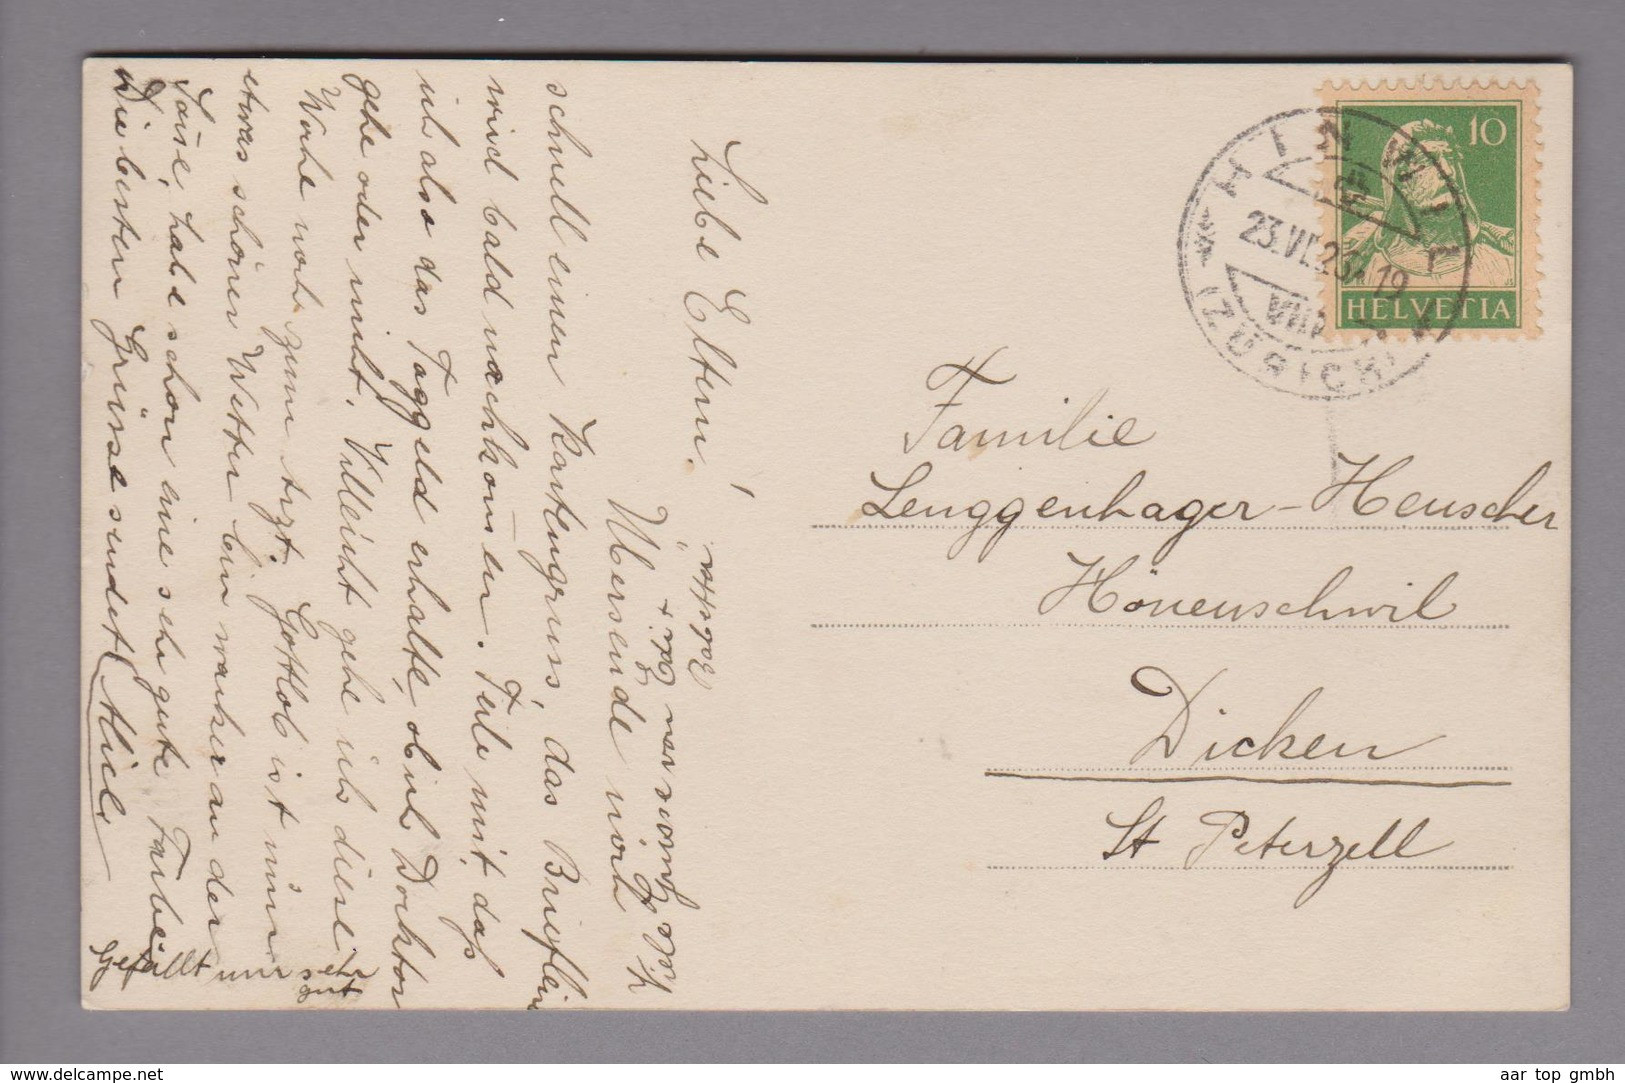 Liebe Eltern!
Übersende noch
schnell einen Kartengruss, das Brieflein
wird bald nachkommen. Teile mit, daß
ich also das Taggeld erhalte, ob ich Doktor
gehe oder nicht. Villeicht gehe ich diese
Woche noch zum Arzt. Gottlob ist nun
etwas schöner Wetter bin wacker an der
habe schon eine sehr gute Farbe
Die besten Grüsse sendet Alice
Gefällt mir sehr
gut
Familie
Lenggenhager-Heuscher
Hönenschwil
Dicken
St Peterzell
HINWIL
23.VI.23. 19
VIII
(ZÜRICH)
10
HELVETIA
www.delcampe.net
aar top gmbh